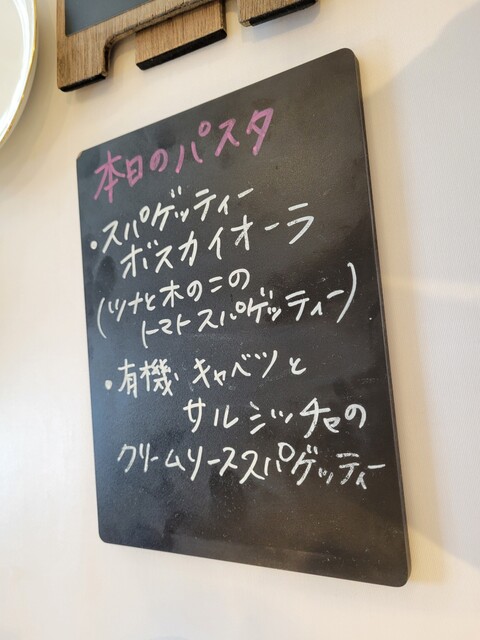 本日のパスタ
・スパゲッティー
ボスカイオーラ
(ツナと木のこの
トマトスパゲッティー)
・有機キャベツと
サルシッチャの
クリームソーススパゲッティー